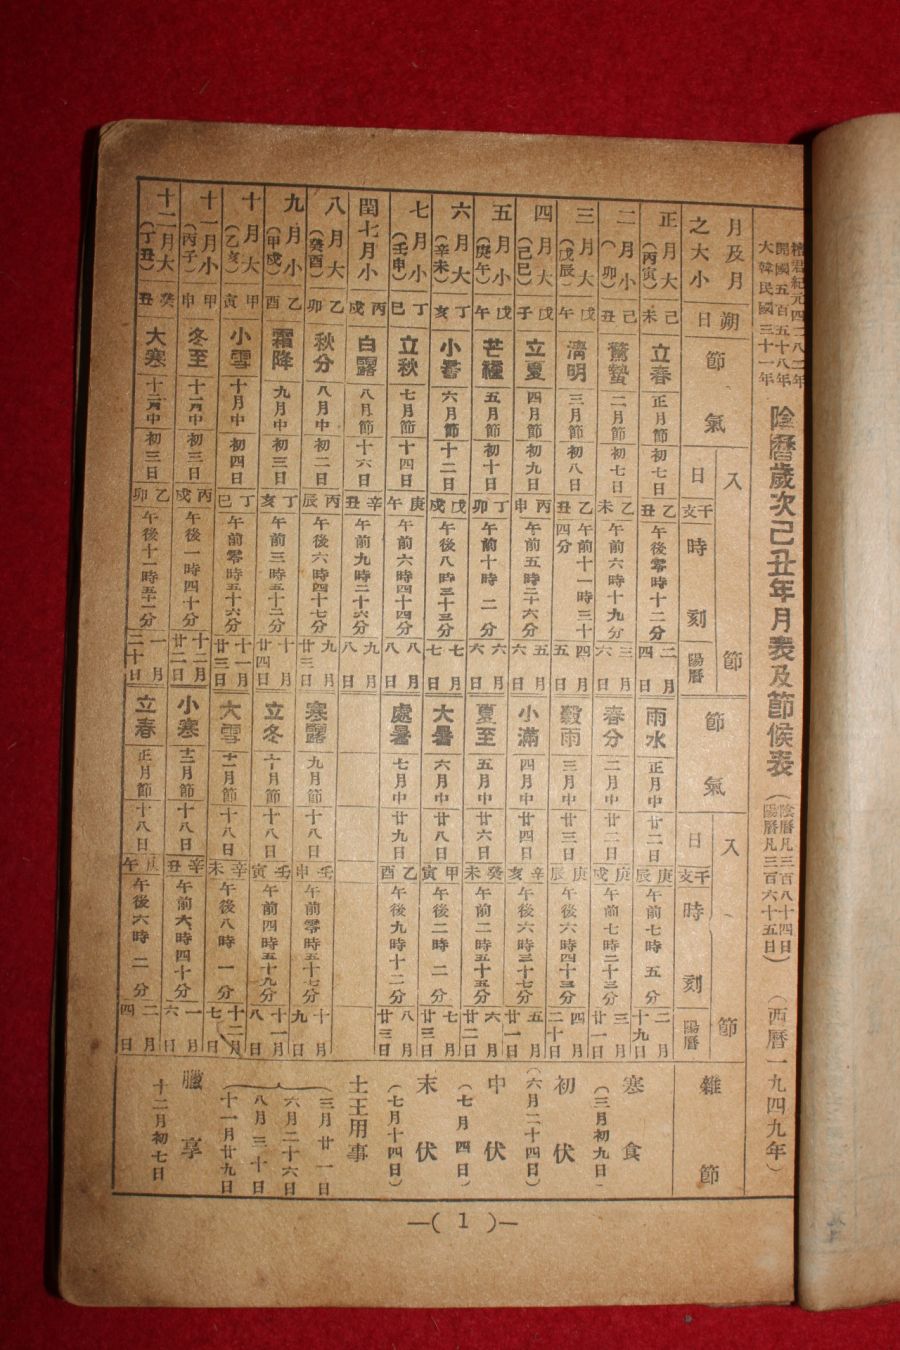 檀君紀元四二八二年
開國五百五十八年
大韓民國三十一年
陰曆歲次己丑年月表及節候表
(陰曆凡三百八十四日
陽曆凡三百六十五日)
(西曆一九四九年)
月及月之大小 朔日 節氣 入節 日 干支 時刻 陽曆 節氣 入節 日 干支 時刻 陽曆 雜節
正月大(丙寅) 己未 立春 正月節 初七日 乙丑 午後零時十二分 二月四日 雨水 正月中 廿二日 庚辰 午前七時五分 二月十九日
二月小( 卯) 己丑 驚蟄 二月節 初七日 乙未 午前六時十九分 三月六日 春分 二月中 廿二日 庚戌 午前七時二十三分 三月廿一日
三月大(戊辰) 戊午 淸明 三月節 初八日 乙丑 午前十一時三十四分 四月五日 穀雨 三月中 廿三日 庚辰 午後六時四十三分 四月二十日
四月大(己巳) 戊子 立夏 四月節 初九日 丙申 午前五時二十六分 五月六日 小滿 四月中 廿四日 辛亥 午後六時三十七分 五月廿一日
五月小(庚午) 戊午 芒種 五月節 初十日 丁卯 午前十時二分 六月六日 夏至 五月中 廿六日 癸未 午前二時五十五分 六月廿二日
六月大(辛未) 丁亥 小暑 六月節 十二日 戊戌 午後八時三十三分 七月七日 大暑 六月中 廿八日 甲寅 午後二時二分 七月廿三日
七月小(壬申) 丁巳 立秋 七月節 十四日 庚午 午前六時四十四分 八月八日 處暑 七月中 廿九日 乙酉 午後九時十二分 八月廿三日
閏七月小 丙戌 白露 八月節 十六日 辛丑 午前九時二十六分 九月八日
八月大(癸酉) 乙卯 秋分 八月中 初二日 丙辰 午後六時四十七分 九月廿三日 寒露 九月節 十八日 壬申 午前零時五十七分 十月九日
九月小(甲戌) 乙酉 霜降 九月中 初三日 丁亥 午前三時五十二分 十月廿四日 立冬 十月節 十八日 壬寅 午前四時五十九分 十一月八日
十月大(乙亥) 甲寅 小雪 十月中 初四日 丁巳 午前零時五十六分 十一月廿三日 大雪 十一月節 十八日 辛未 午後八時一分 十二月七日
十一月小(丙子) 甲申 冬至 十一月中 初三日 丙戌 午後一時四十分 十二月廿二日 小寒 十二月節 十八日 辛丑 午前六時四十分 一月六日
十二月大(丁丑) 癸丑 大寒 十二月中 初三日 乙卯 午後十一時五十一分 一月二十日 立春 正月節 十八日 午 午後六時二分 二月四日
寒食
(三月初九日)
初伏
(六月二十四日)
中伏
(七月四日)
末伏
(七月十四日)
土王用事
三月廿一日
六月二十六日
八月三十日
十一月廿九日
臘享
十二月初七日
—( 1 )—